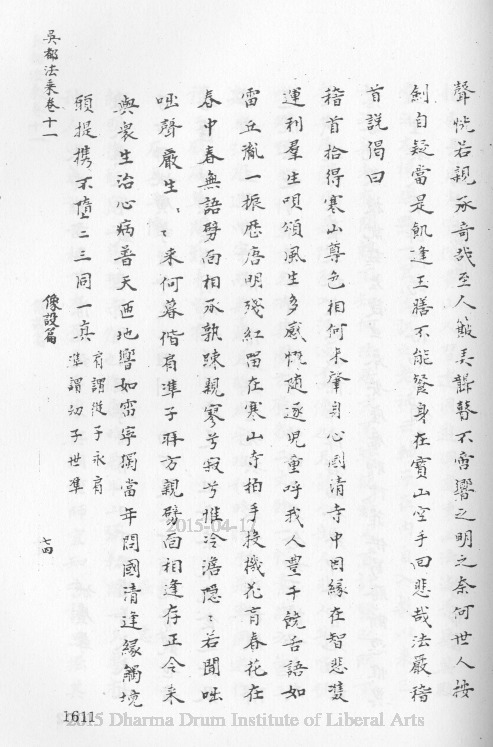 聲恍若親承奇哉至人籤美聾瞽不啻響之明之奈何世人按
劍自疑當是飢逢王膳不能餐身在寶山空手回悲哉法嚴稽
首說偈曰
稽首拾得寒山尊色相何未肇身心國清寺中因緣在智悲雙
運利羣生唄頌風生多感慨隨逐兒童呼我人豊干饒舌語如
雷丘胤一振歷唐明殘紅留在寒山寺拍手投機花育春花在
春中春無語劈面相承孰踈親寥兮寂兮惟冷澹隱〻若聞咄
咄聲嚴生〻〻来何暮偕肩準子拜方親劈面相逢存正令来
與衆生治心病普天匝地響如雷寧獨當年問國清逢緣觸境
頭提攜不墮二三同一真
肩謂從子永肩
準謂幼子世準
吳都法乘卷十一
像設篇
七四
1611
2015-04-17
2015 Dharma Drum Institute of Liberal Arts